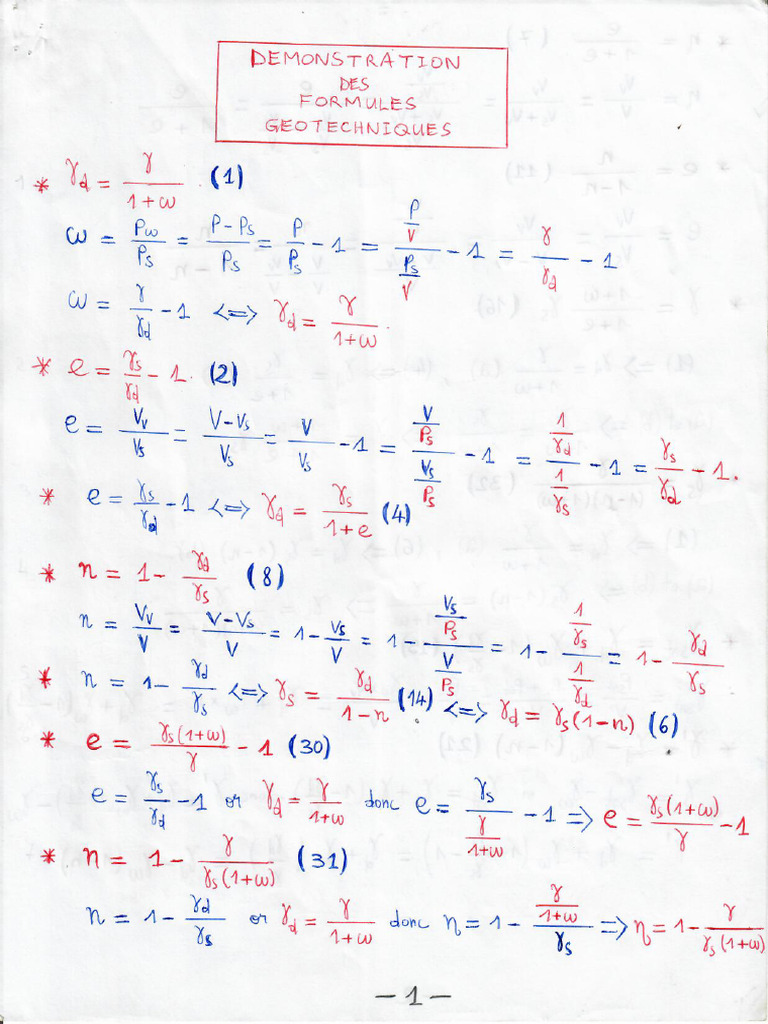 DEMONSTRATION
DES
FORMULES
GEOTECHNIQUES
* γd = γ/(1+ω) (1)
ω = Pω/Ps = (P-Ps)/Ps = P/Ps - 1 = (P/V)/(Ps/V) - 1 = γ/γd - 1
ω = γ/γd - 1 <=> γd = γ/(1+ω).
* e = γs/γd - 1. (2)
e = Vv/Vs = (V-Vs)/Vs = V/Vs - 1 = (V/Ps)/(Vs/Ps) - 1 = (1/γd)/(1/γs) - 1 = γs/γd - 1.
* e = γs/γd - 1 <=> γd = γs/(1+e) (4)
* n = 1 - γd/γs (8)
n = Vv/V = (V-Vs)/V = 1 - Vs/V = 1 - (Vs/Ps)/(V/Ps) = 1 - (1/γs)/(1/γd) = 1 - γd/γs
* n = 1 - γd/γs <=> γs = γd/(1-n) (14) <=> γd = γs(1-n) (6)
* e = γs(1+ω)/γ - 1 (30)
e = γs/γd - 1 or γd = γ/(1+ω) donc e = γs/(γ/(1+ω)) - 1 => e = γs(1+ω)/γ - 1
* n = 1 - γ/(γs(1+ω)) (31)
n = 1 - γd/γs or γd = γ/(1+ω) donc n = 1 - (γ/(1+ω))/γs => n = 1 - γ/(γs(1+ω))
- 1 -